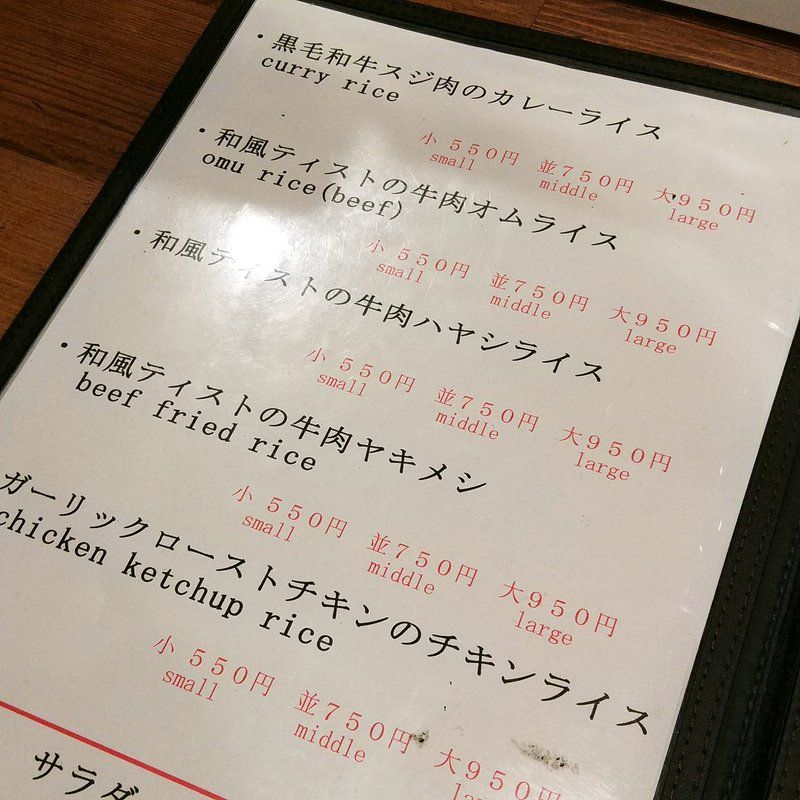 ・黒毛和牛スジ肉のカレーライス
curry rice
小 ５５０円 並７５０円 大９５０円
small middle large
・和風ティストの牛肉オムライス
omu rice(beef)
小 ５５０円 並７５０円 大９５０円
small middle large
・和風ティストの牛肉ハヤシライス
小 ５５０円 並７５０円 大９５０円
small middle large
・和風ティストの牛肉ヤキメシ
beef fried rice
小 ５５０円 並７５０円 大９５０円
small middle large
ガーリックローストチキンのチキンライス
chicken ketchup rice
小 ５５０円 並７５０円 大９５０円
small middle
サラダ